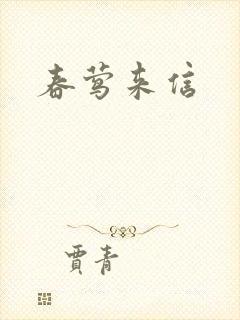 春莺来信
賈青